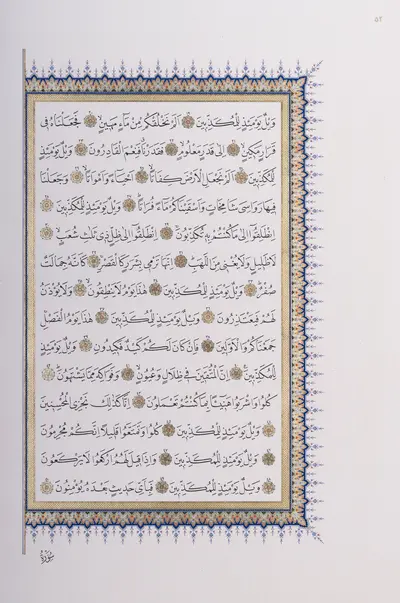 وَيْلٌ يَوْمَئِذٍ لِلْمُكَذِّبِينَ ۝ اَلَمْ نَخْلُقْكُمْ مِنْ مَاءٍ مَهِينٍ ۝ فَجَعَلْنَاهُ فِى
قَرَارٍ مَكِينٍ ۝ اِلٰى قَدَرٍ مَعْلُومٍ ۝ فَقَدَرْنَا فَنِعْمَ الْقَادِرُونَ ۝ وَيْلٌ يَوْمَئِذٍ
لِلْمُكَذِّبِينَ ۝ اَلَمْ نَجْعَلِ الْاَرْضَ كِفَاتًا ۝ اَحْيَاءً وَاَمْوَاتًا ۝ وَجَعَلْنَا
فِيهَا رَوَاسِىَ شَامِخَاتٍ وَاَسْقَيْنَاكُمْ مَاءً فُرَاتًا ۝ وَيْلٌ يَوْمَئِذٍ لِلْمُكَذِّبِينَ ۝
اِنْطَلِقُوا اِلٰى مَا كُنْتُمْ بِهِ تُكَذِّبُونَ ۝ اِنْطَلِقُوا اِلٰى ظِلٍّ ذِى ثَلٰثِ شُعَبٍ ۝
لَا ظَلِيلٍ وَلَا يُغْنِى مِنَ اللَّهَبِ ۝ اِنَّهَا تَرْمِى بِشَرَرٍ كَالْقَصْرِ ۝ كَاَنَّهُ جِمَالَتٌ
صُفْرٌ ۝ وَيْلٌ يَوْمَئِذٍ لِلْمُكَذِّبِينَ ۝ هٰذَا يَوْمُ لَا يَنْطِقُونَ ۝ وَلَا يُؤْذَنُ
لَهُمْ فَيَعْتَذِرُونَ ۝ وَيْلٌ يَوْمَئِذٍ لِلْمُكَذِّبِينَ ۝ هٰذَا يَوْمُ الْفَصْلِ
جَمَعْنَاكُمْ وَالْاَوَّلِينَ ۝ فَاِنْ كَانَ لَكُمْ كَيْدٌ فَكِيدُونِ ۝ وَيْلٌ يَوْمَئِذٍ
لِلْمُكَذِّبِينَ ۝ اِنَّ الْمُتَّقِينَ فِى ظِلَالٍ وَعُيُونٍ ۝ وَفَوَاكِهَ مِمَّا يَشْتَهُونَ ۝
كُلُوا وَاشْرَبُوا هَنِيئًا بِمَا كُنْتُمْ تَعْمَلُونَ ۝ اِنَّا كَذٰلِكَ نَجْزِى الْمُحْسِنِينَ
۝ وَيْلٌ يَوْمَئِذٍ لِلْمُكَذِّبِينَ ۝ كُلُوا وَتَمَتَّعُوا قَلِيلًا اِنَّكُمْ مُجْرِمُونَ
۝ وَيْلٌ يَوْمَئِذٍ لِلْمُكَذِّبِينَ ۝ وَاِذَا قِيلَ لَهُمُ ارْكَعُوا لَا يَرْكَعُونَ
۝ وَيْلٌ يَوْمَئِذٍ لِلْمُكَذِّبِينَ ۝ فَبِاَىِّ حَدِيثٍ بَعْدَهُ يُؤْمِنُونَ ۝
سُورَةُ